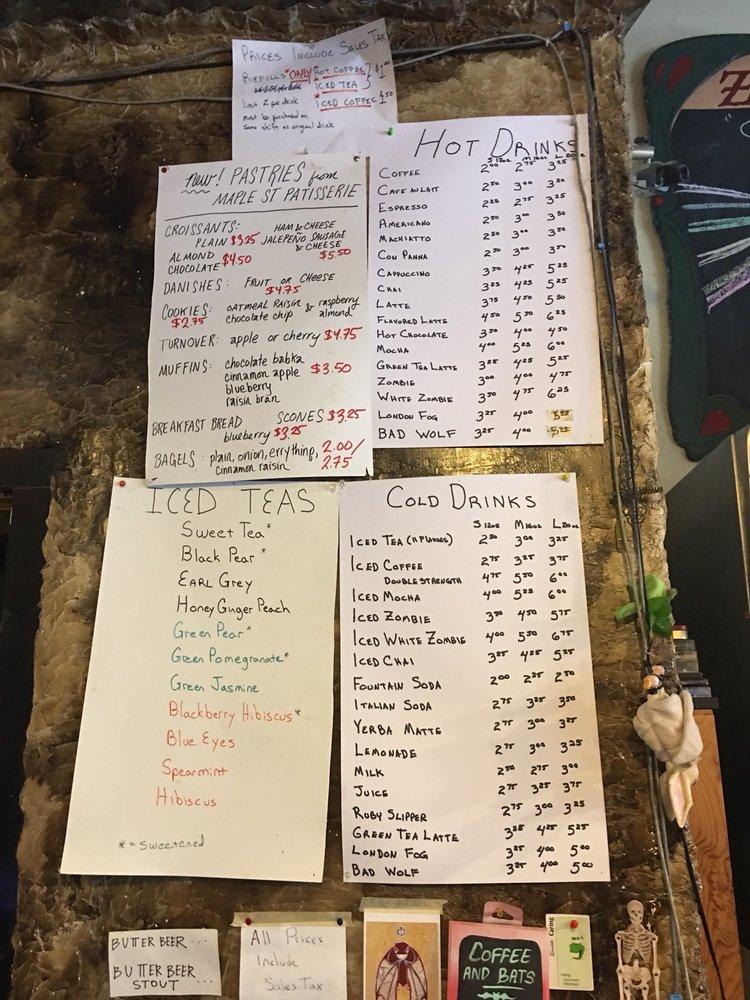 PRICES INCLUDE SALES TAX
REFILLS *ONLY HOT COFFEE
ICED TEA } $1.00
* ICED COFFEE $1.50
limit 2 per drink
must be purchased on
same shift as original drink
HOT DRINKS
S 12oz M 16oz L 20oz
COFFEE 2.00 2.75 3.25
CAFE AU LAIT 2.50 3.00 3.50
ESPRESSO 2.25 2.75 3.25
AMERICANO 2.50 3.00 3.50
MACHIATTO 2.50 3.00 3.50
CON PANNA 2.50 3.00 3.50
CAPPUCCINO 3.50 4.25 5.25
CHAI 3.25 4.25 5.25
LATTE 3.75 4.50 5.50
FLAVORED LATTE 4.50 5.50 6.25
HOT CHOCOLATE 3.50 4.00 4.50
MOCHA 4.00 5.25 6.00
GREEN TEA LATTE 3.25 4.25 5.25
ZOMBIE 3.00 4.00 4.75
WHITE ZOMBIE 3.50 4.75 6.25
LONDON FOG 3.25 4.00
BAD WOLF 3.25 4.00
new! PASTRIES from
MAPLE ST PATISSERIE
CROISSANTS: HAM & CHEESE
PLAIN $3.25 JALEPEÑO SAUSAGE
& CHEESE
ALMOND $4.50 $5.50
CHOCOLATE
DANISHES: FRUIT OR CHEESE
$4.75
COOKIES: OATMEAL RAISIN & raspberry
$2.75 chocolate chip almond
TURNOVER: apple or cherry $4.75
MUFFINS: chocolate babka
cinnamon apple $3.50
blueberry
raisin bran
BREAKFAST BREAD SCONES $3.25
blueberry $3.25
BAGELS: plain, onion, errything, 2.00/
cinnamon raisin 2.75
ICED TEAS
Sweet Tea*
Black Pear*
EARL Grey
Honey Ginger Peach
Green Pear*
Green Pomegranate*
Green Jasmine
Blackberry Hibiscus*
Blue Eyes
Spearmint
Hibiscus
* = sweetened
COLD DRINKS
S 12oz M 16oz L 20oz
ICED TEA (11 FLAVORS) 2.50 3.00 3.25
ICED COFFEE 2.75 3.25 3.75
DOUBLE STRENGTH 4.75 5.50 6.00
ICED MOCHA 4.00 5.25 6.00
ICED ZOMBIE 3.50 4.50 5.75
ICED WHITE ZOMBIE 4.00 5.50 6.75
ICED CHAI 3.25 4.25 5.25
FOUNTAIN SODA 2.00 2.25 2.50
ITALIAN SODA 2.75 3.25 3.50
YERBA MATTE 2.75 3.00 3.25
LEMONADE 2.75 3.00 3.25
MILK 2.50 2.75 3.00
JUICE 2.75 3.25 3.75
RUBY SLIPPER 2.75 3.00 3.25
GREEN TEA LATTE 3.25 4.25 5.25
LONDON FOG 3.25 4.00 5.00
BAD WOLF 3.25 4.00 5.00
BUTTER BEER...
BUTTER BEER...
STOUT
All Prices
Include
Sales Tax
COFFEE
AND BATS
Caring